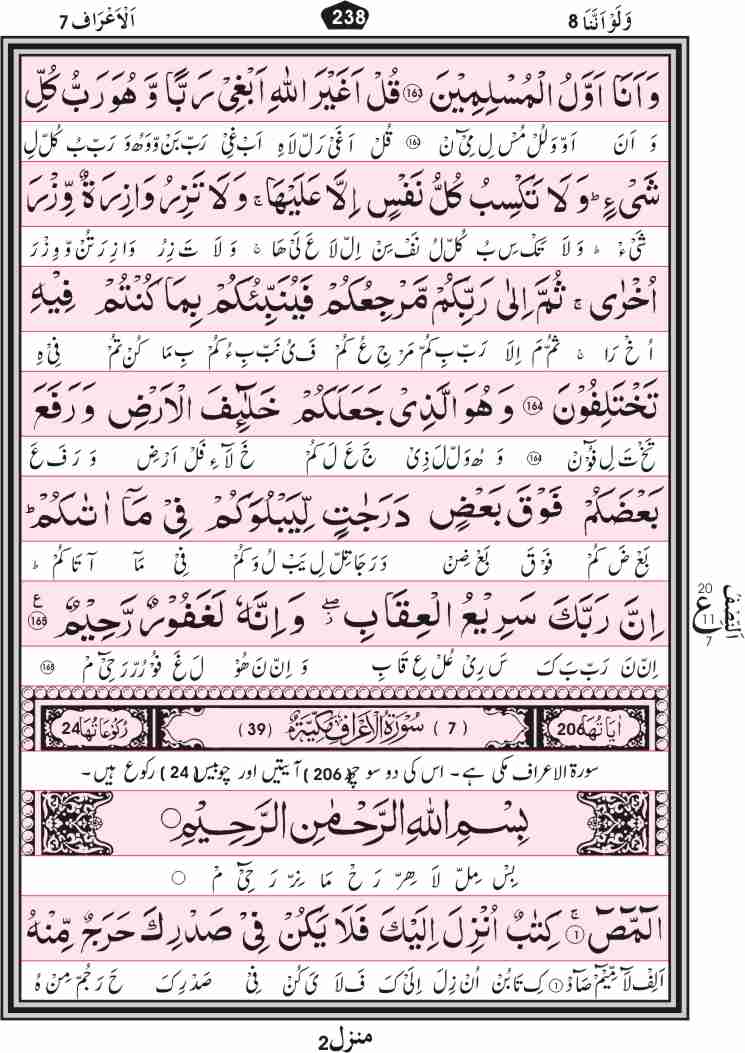 وَلَوْ اَنَّنَا 8
238
اَلْاَعْرَاف 7
وَ اَنَا اَوَّلُ الْمُسْلِمِيْنَ ۝163 قُلْ اَغَيْرَ اللّٰهِ اَبْغِيْ رَبًّا وَّ هُوَ رَبُّ كُلِّ
وَ اَنَ اَوْ وَلُلْ مُسْ لِ مِىْٓ نْ ۝163 قُلْ اَ غَىْ رَلْ لَا هِ اَبْ غِىْ رَبْ بَنْ وْ وَهُ وَ رَبْ بُ كُلْ لِ
شَيْءٍ ؕ وَ لَا تَكْسِبُ كُلُّ نَفْسٍ اِلَّا عَلَيْهَا ۚ وَ لَا تَزِرُ وَازِرَةٌ وِّزْرَ
شَىْ ءْ ؕ وَ لَا تَكْ سِ بُ كُلْ لُ نَفْ سِنْ اِلْ لَا عَ لَىْ هَا ۚ وَ لَا تَ زِ رُ وَا زِ رَ تُنْ وْ وِزْ رَ
اُخْرٰى ۚ ثُمَّ اِلٰى رَبِّكُمْ مَّرْجِعُكُمْ فَيُنَبِّئُكُمْ بِمَا كُنْتُمْ فِيْهِ
اُ خْ رَا ۚ ثُمْ مَ اِلَا رَبْ بِ كُمْ مَرْ جِ عُ كُمْ فَ ىُ نَبْ بِ ءُ كُمْ بِ مَا كُنْ تُمْ فِىْ هِ
تَخْتَلِفُوْنَ ۝164 وَ هُوَ الَّذِيْ جَعَلَكُمْ خَلٰٓئِفَ الْاَرْضِ وَ رَفَعَ
تَخْ تَ لِ فُوْٓ نْ ۝164 وَ هُ وَلْ لَ ذِىْ جَ عَ لَ كُمْ خَ لَآ ءِ فَلْ اَرْ ضِ وَ رَ فَ عَ
بَعْضَكُمْ فَوْقَ بَعْضٍ دَرَجٰتٍ لِّيَبْلُوَكُمْ فِيْ مَآ اٰتٰىكُمْ ؕ
بَعْ ضَ كُمْ فَوْ قَ بَعْ ضِنْ دَ رَ جَا تِلْ لِ يَبْ لُ وَ كُمْ فِىْ مَآ آ تَا كُمْ ؕ
اِنَّ رَبَّكَ سَرِيْعُ الْعِقَابِ ۖ وَ اِنَّهٗ لَغَفُوْرٌ رَّحِيْمٌ ۝165 ع
20
ع 11
7
اَلنِّصْف
اِنْ نَ رَبْ بَ كَ سَ رِىْ عُلْ عِ قَا بِ وَ اِنْ نَ هُوْ لَ غَ فُوْ رُرْ رَ حِىْٓ مْ ۝165
اٰيَاتُهَا 206
( 7 ) سُوْرَةُ الْاَعْرَافِ مَكِّيَّةٌ ( 39 )
رُكُوْعَاتُهَا 24
سورۃ الاعراف مکی ہے۔ اس کی دو سو چھ( 206 )آیتیں اور چوبیس( 24 ) رکوع ہیں۔
بِسْمِ اللّٰهِ الرَّحْمٰنِ الرَّحِيْمِ ۝
بِسْ مِلْ لَا هِرْ رَ حْ مَا نِرْ رَ حِىْٓ مْ ۝
الٓمّٓصٓ ۝1 كِتٰبٌ اُنْزِلَ اِلَيْكَ فَلَا يَكُنْ فِيْ صَدْرِكَ حَرَجٌ مِّنْهُ
اَلِفْ لَآ مِّيْٓمْ صَآدْ ۝1 كِ تَا بُنْ اُنْ زِ لَ اِلَىْ كَ فَ لَا ىَ كُنْ فِىْ صَدْ رِ كَ حَ رَ جُمْ مِنْ هُ
منزل2